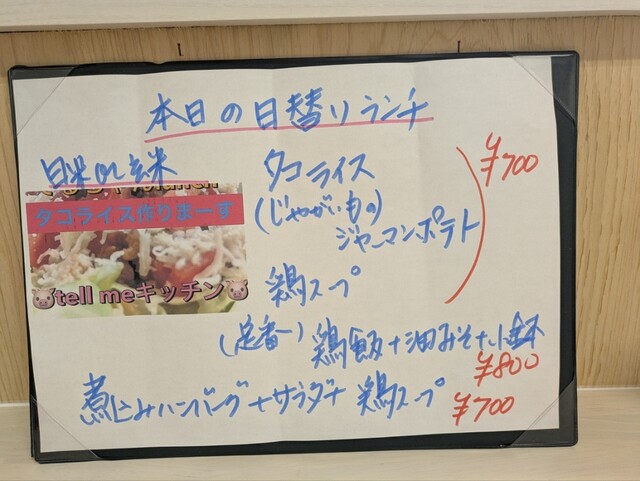 本日の日替りランチ
白米or玄米
タコライス
¥700
タコライス作りまーす
(じゃがいもの)
ジャーマンポテト
tell meキッチン
鶏スープ
(定番) 鶏飯+油みそ+小鉢
¥800
煮込みハンバーグ+サラダ+鶏スープ
¥700